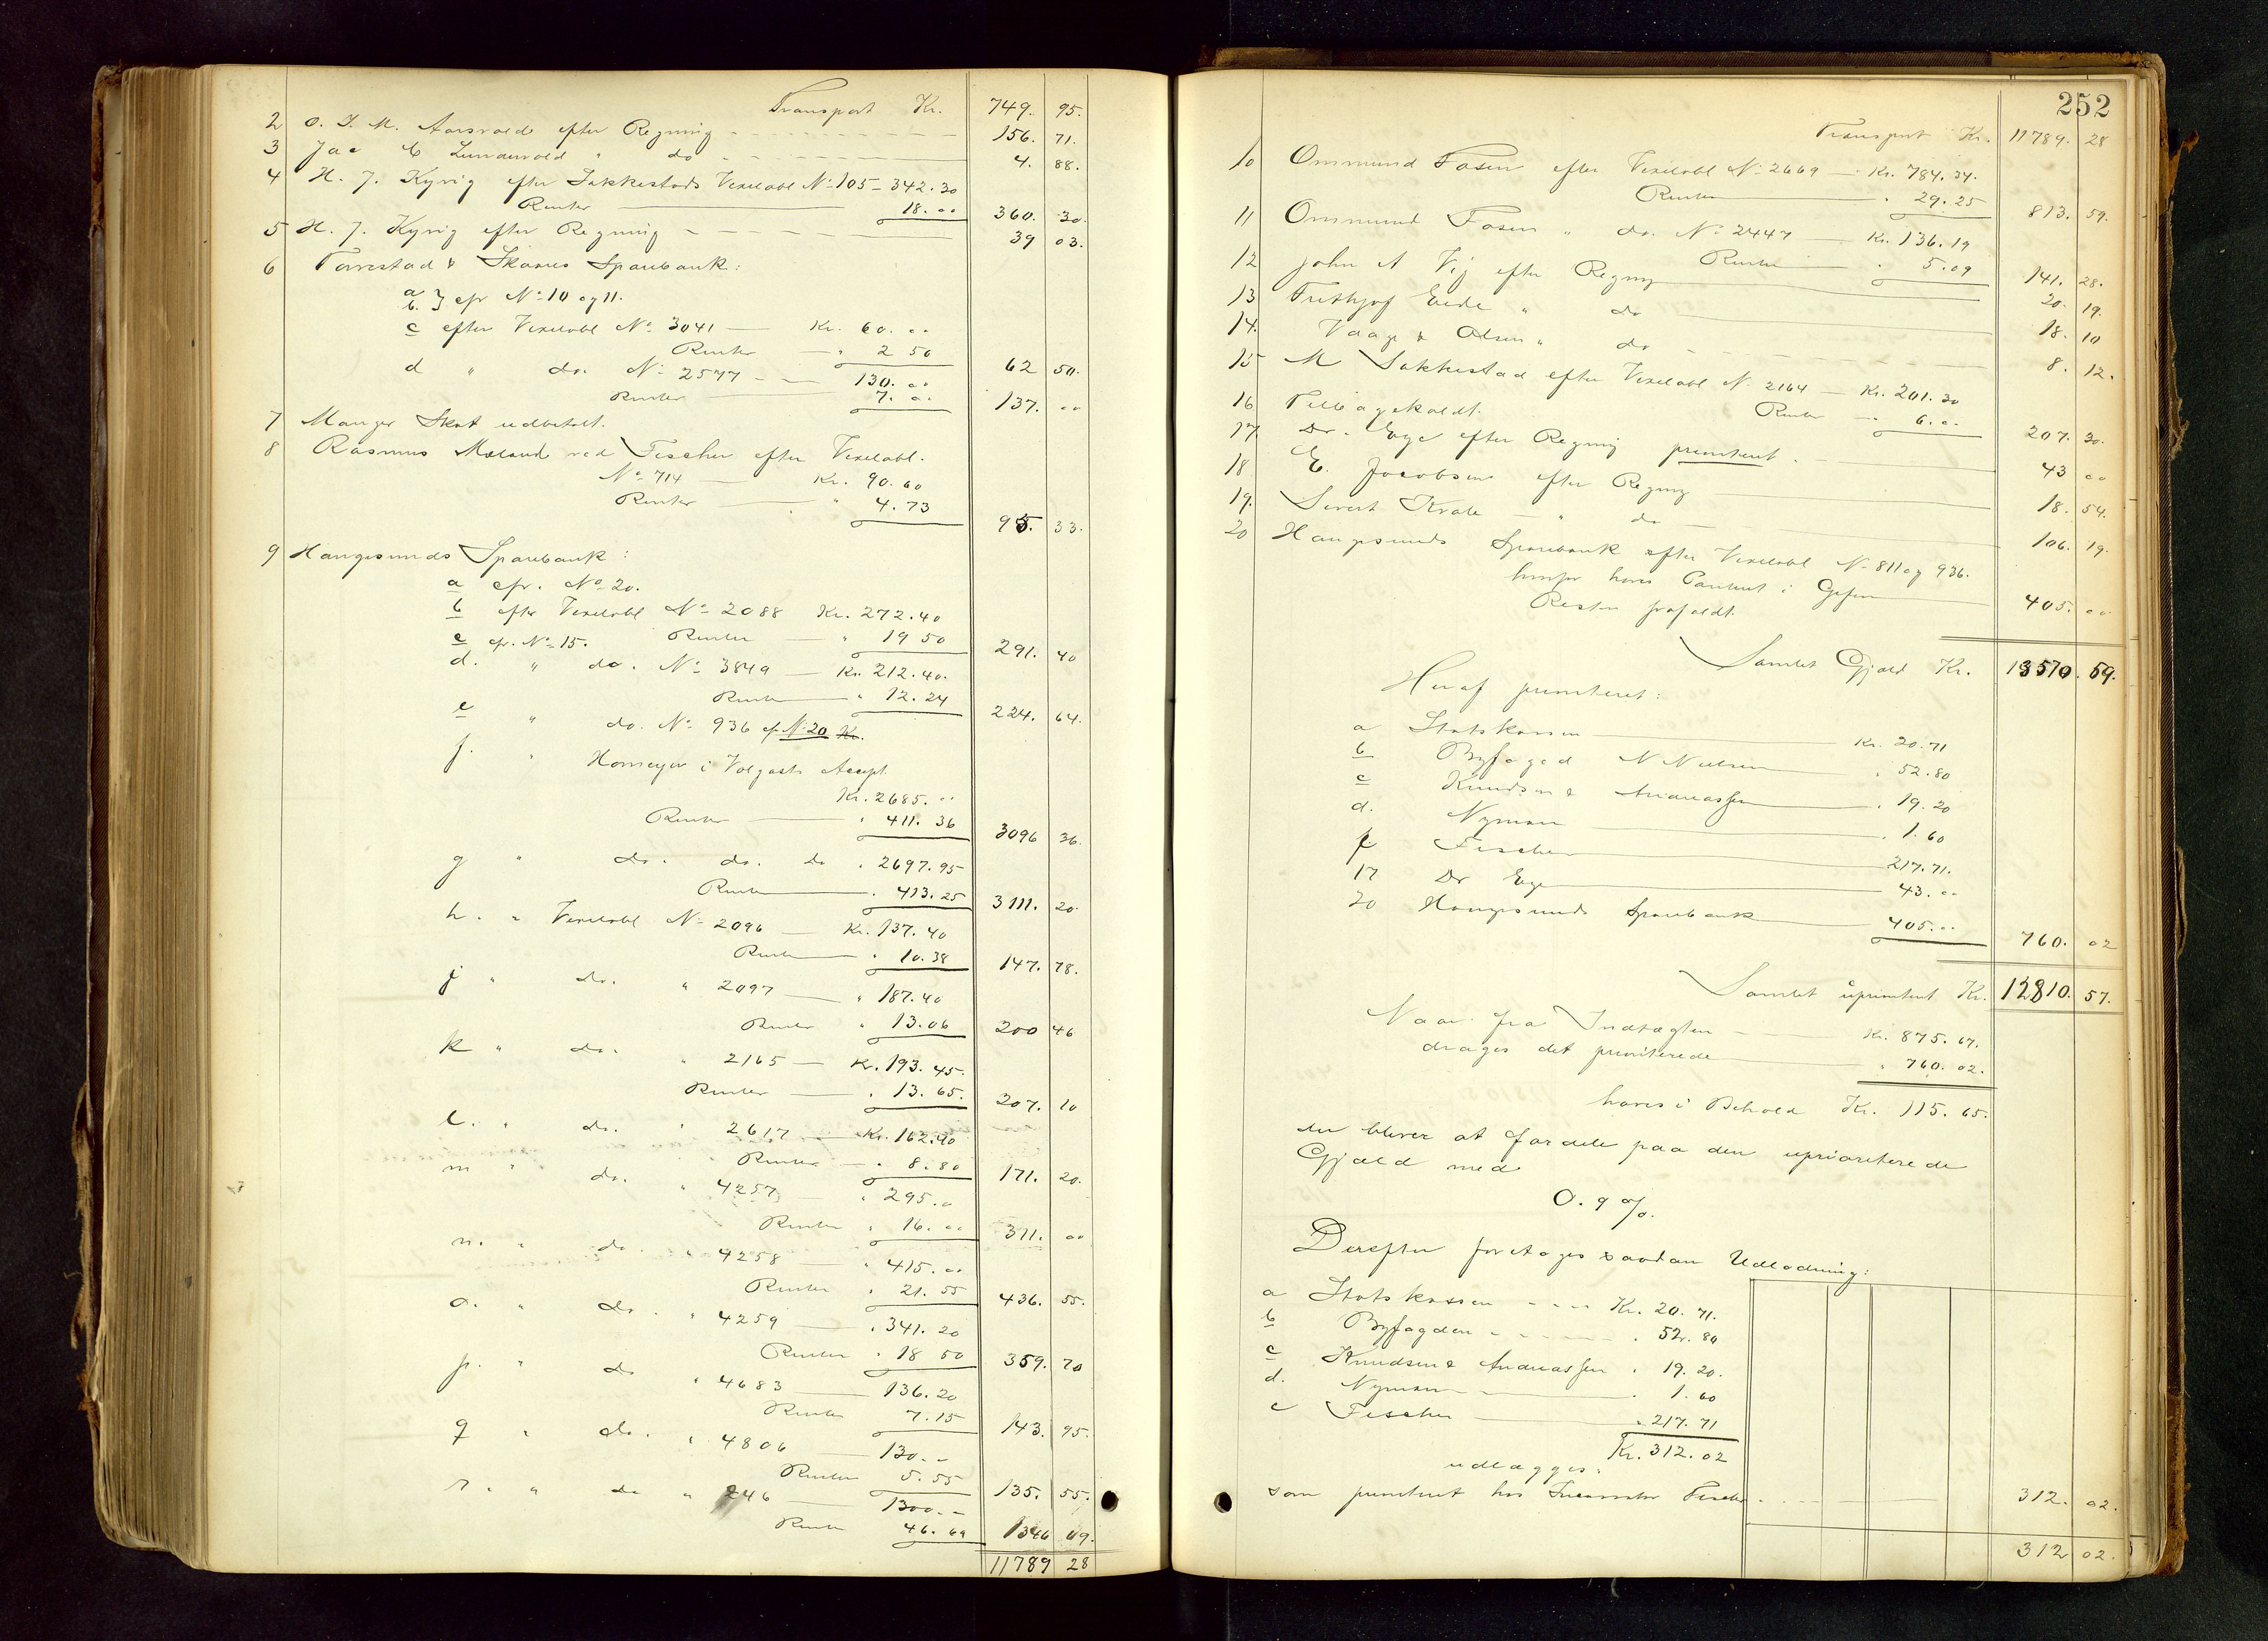 Transport Kr. 749. 95.
2 O. T. M. Aarsvold efter Regning 156. 71.
3 Jac C Lundevold " do 4. 88.
4 H. J. Kyvig efter Sakkestads Vexelobl No 105 - 342.30
Renter 18.00 360. 30.
5 H. J. Kyvig efter Regning 39 03.
6 Torvestad & Skaares Sparebank:
a
b. } cfr No 10 og 11.
c efter Vexelobl No 3041 — Kr. 60.00
Renter " 2 50 62 50.
d " do. No 2577 — 130.00
Renter 7.00 137. 00
7 Manger Skat udbetalt.
8 Rasmus Mæland ved Fischer efter Vexelobl.
No 714 — Kr. 90.60
Renter " 4.73 95. 33.
9 Haugesunds Sparebank:
a cfr. No 20.
b efter Vexelobl No 2088 Kr. 272.40
c cfr. No 15. Renter — " 19 50 291. 40
d. " do. No 3849 — Kr. 212.40.
Renter " 12.24 224. 64.
e " do. No 936 cfr No 20 Kr.
f. " Homeyer i Volgasts Accept.
Kr. 2685.00
Renter " 411.36 3096 36.
g " do. do. do " 2697.95
Renter " 413.25 3111. 20.
h. " Vexelobl No 2096 — Kr. 137.40
Renter " 10.38 147. 78.
j " do. " 2097 — " 187.40
Renter " 13.06 200 46
k " do. " 2165 — Kr. 193.45.
Renter " 13.65. 207. 10
l. " do. " 2617 — Kr. 162.40
Renter " 8.80 171. 20.
m " do. " 4257 — " 295.00
Renter " 16.00 311. 00
n. " do. " 4258 — " 415.00
Renter " 21.55 436. 55.
o. " do. " 4259 — " 341.20
Renter " 18 50 359. 70
p. " do " 4683 — 136.20
Renter 7.15 143. 95.
q " do. " 4806 — 130.-
Renter 5.55 135. 55.
r. " " do " 246 — 1300.-
Renter 46.69 1346 69.
11789 28
252
Transport Kr. 11789. 28
10 Ommund Fosen efter Vexelobl No 2669 — Kr. 784.34.
Renter " 29.25 813. 59.
11 Ommund Fosen " do. No 2447 — Kr. 136.19
Renter " 5.09 141. 28.
12 John A Vij efter Regning 20. 19.
13 Frithjof Eide " do 18. 10
14. Vaage & Olsen " do 8. 12.
15 M Sakkestad efter Vexelobl No 2164 — Kr. 201.30
Renter — " 6.00 207. 30.
16 Tilbagekaldt.
17. Dr. Eege efter Regning prioriteret. 43 00
18 E. Jacobsen efter Regning 18. 54.
19. Sivert Krale — " do — 106. 19.
20 Haugesunds Sparebank efter Vexelobl No 811 og 936.
hvorfor haves Panteret i
Resten frafaldt. 405. 00
Samlet Gjæld Kr. 13570. 59.
Heraf prioriteret:
a Statskassen Kr. 20.71
b Byfoged N Nielsen " 52.80
c Knudsen & Andreassen " 19.20
d. Nyman " 1.60
f Fischer 217.71.
17 Dr Eege 43.00
20 Haugesunds Sparebank 405.00 760. 02
Samlet uprioritert Kr. 12810. 57.
Naar fra Indtægten — Kr. 875.67.
drages det prioriterede " 760.02.
haves i Behold Kr. 115.65.
der bliver at fordele paa den uprioriterede
Gjæld med
0.9 %.
Derefter foretoges saadan Udlodning:
a Statskassen - - - Kr. 20.71.
b Byfogden - - - - - " 52.80
c Knudsen & Andreassen " 19.20.
d. Nyman " 1.60
e Fischer " 217.71
Kr. 312.02
udlægges:
som prioriteret hos Fischer 312. 02.
312 02.